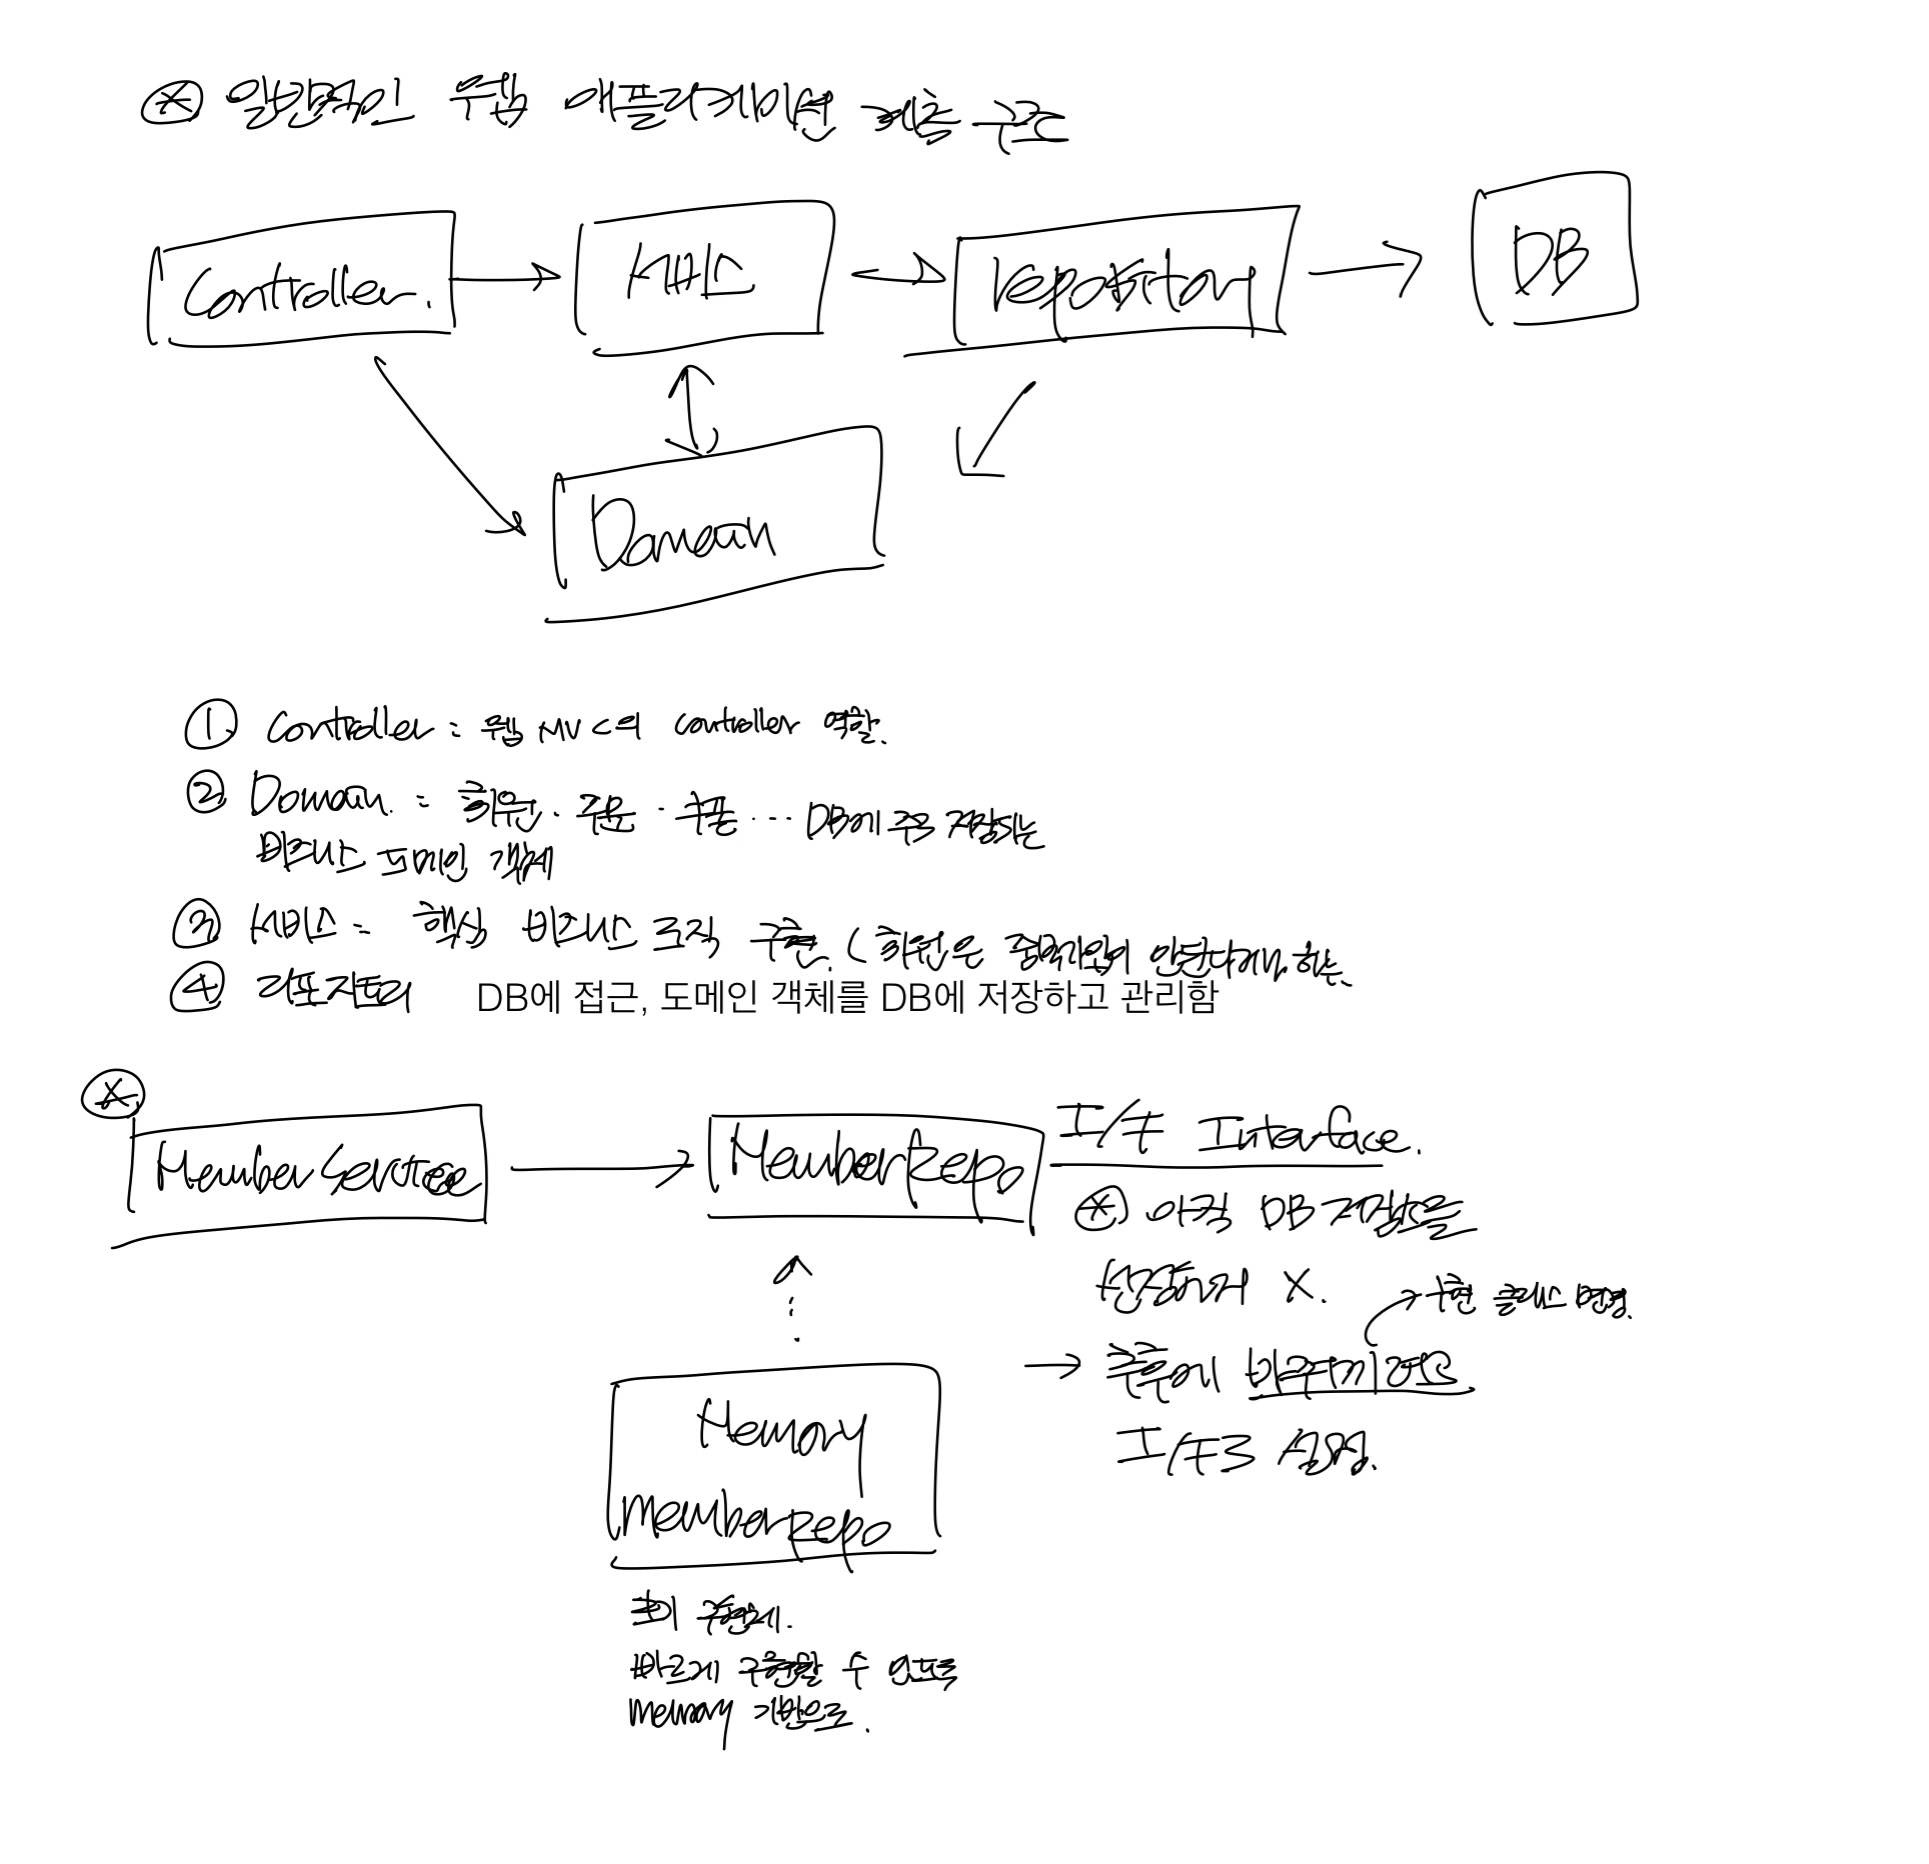 ※ 일반적인 웹 애플리케이션 계층 구조
Controller. 서비스 repository DB
Domain
① Controller : 웹 MVC의 controller 역할.
② Domain. : 회원. 주문. 쿠폰 ... DB에 주로 저장되는
비즈니스 도메인 객체
③ 서비스 = 핵심 비즈니스 로직 구현. ( 회원은 중복가입이 안된다거나 하는.
④ 리포지토리 DB에 접근, 도메인 객체를 DB에 저장하고 관리함
※
Member Service MemberRepo I/F Interface.
※ 아직 DB 저장소를
선정하지 X.
→ 구현 클래스 변경.
→ 추후에 바꾸기
I/F로 설정.
Memory
MemberRepo
초기 구현체.
빠르게 구현할 수 있도록
memory 기반으로.